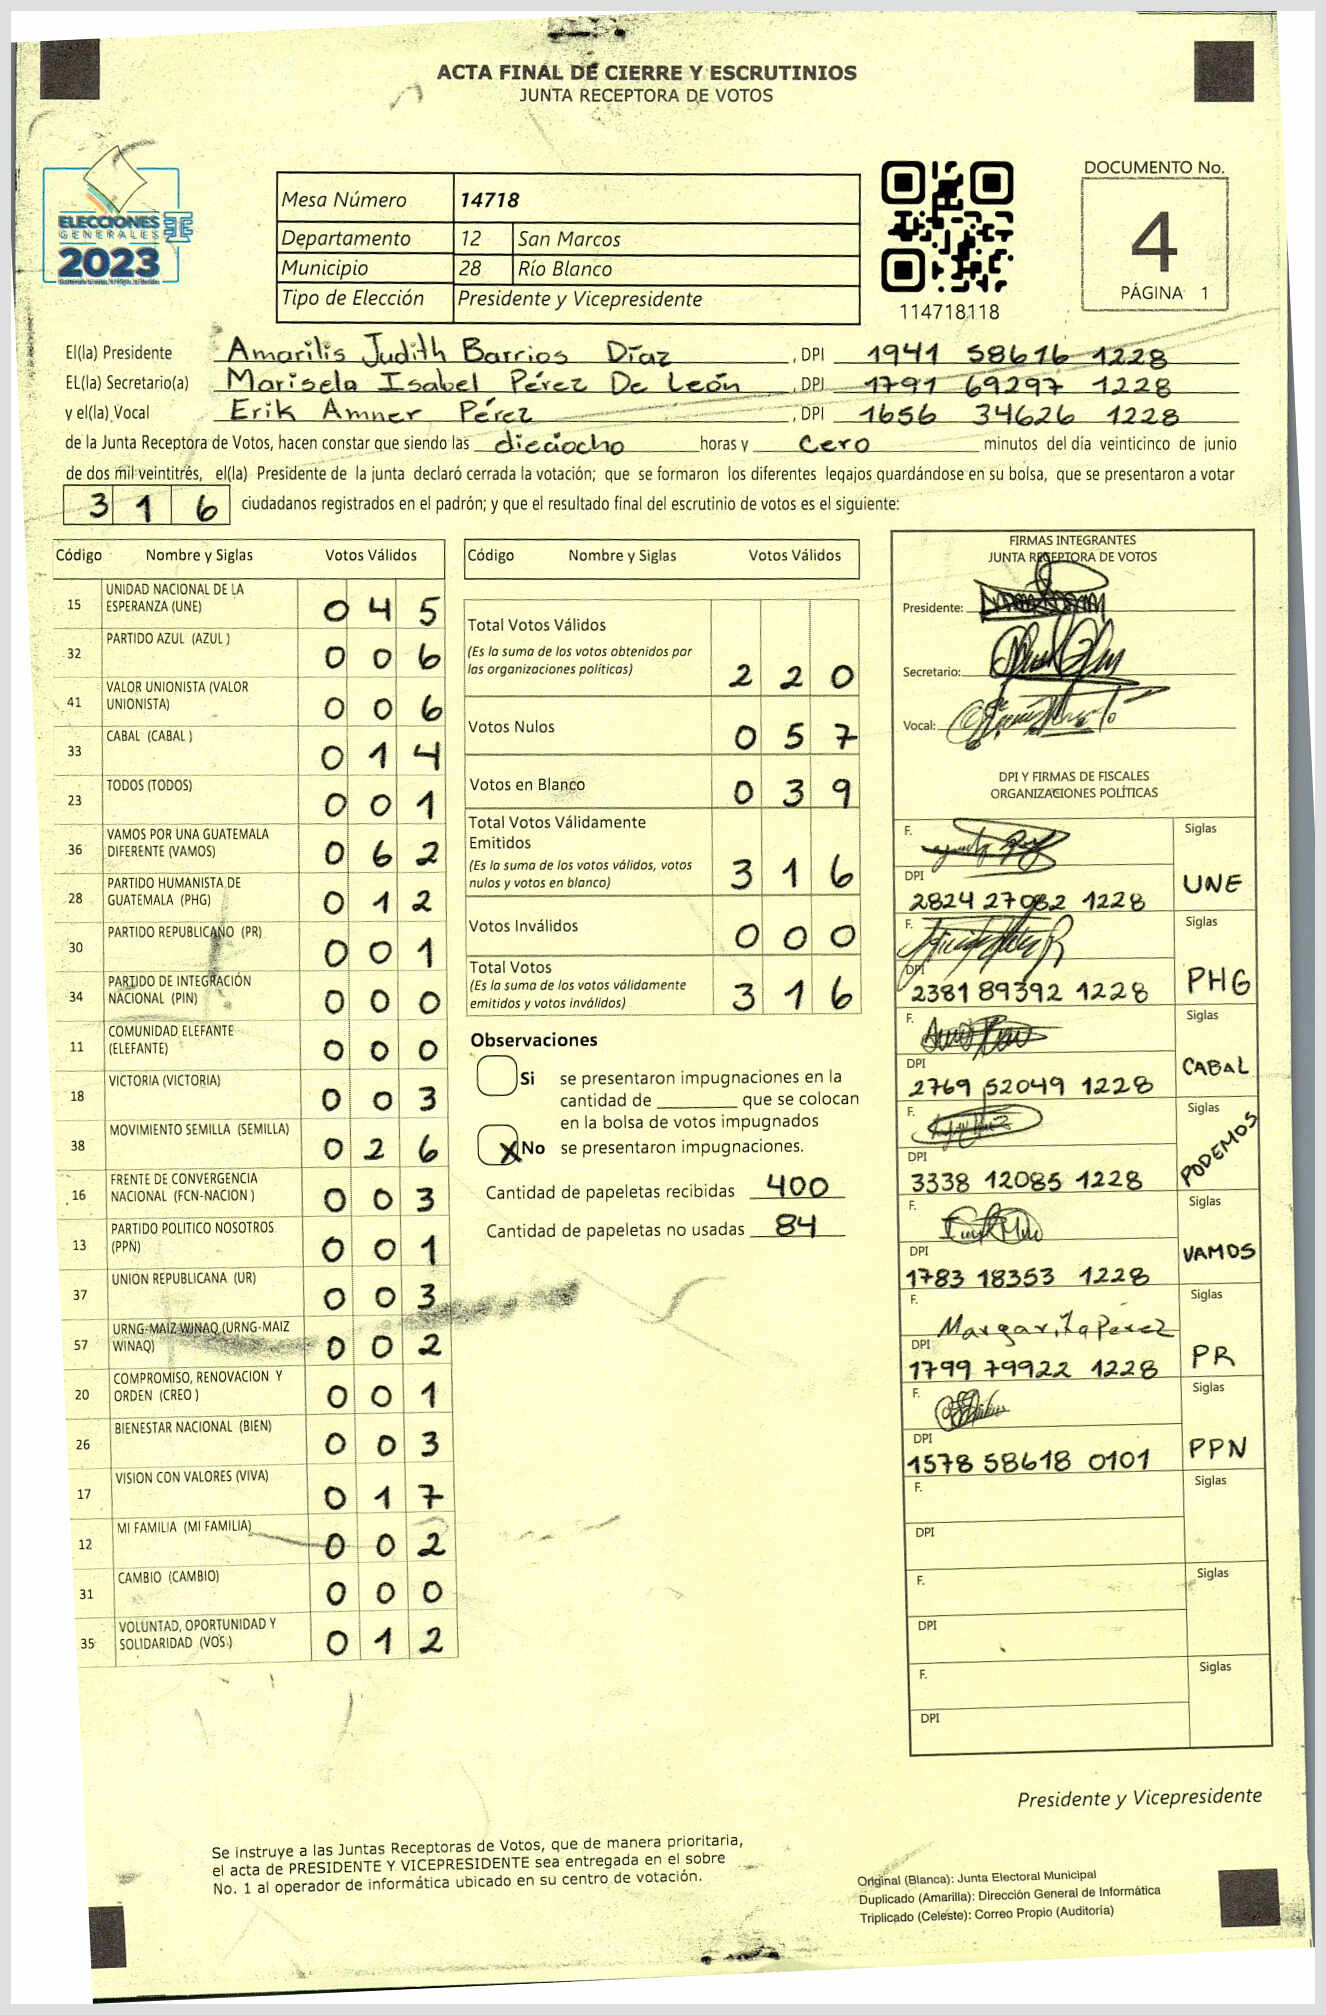 ACTA FINAL DE CIERRE Y ESCRUTINIOS
JUNTA RECEPTORA DE VOTOS
ELECCIONES
GENERALES
2023
Mesa Número 14718
Departamento 12 San Marcos
Municipio 28 Río Blanco
Tipo de Elección Presidente y Vicepresidente
114718118
DOCUMENTO No.
4
PÁGINA 1
El(la) Presidente Amarilis Judith Barrios Díaz, DPI 1941 58616 1228
EL(la) Secretario(a) Marisela Isabel Pérez De León, DPI 1791 69297 1228
y el(la) Vocal Erik Amner Pérez, DPI 1656 34626 1228
de la Junta Receptora de Votos, hacen constar que siendo las dieciocho horas y cero minutos del día veinticinco de junio
de dos mil veintitrés, el(la) Presidente de la junta declaró cerrada la votación; que se formaron los diferentes legajos guardándose en su bolsa, que se presentaron a votar
316 ciudadanos registrados en el padrón; y que el resultado final del escrutinio de votos es el siguiente:
Código Nombre y Siglas Votos Válidos
15 UNIDAD NACIONAL DE LA ESPERANZA (UNE) 045
32 PARTIDO AZUL (AZUL ) 006
41 VALOR UNIONISTA (VALOR UNIONISTA) 006
33 CABAL (CABAL ) 014
23 TODOS (TODOS) 001
36 VAMOS POR UNA GUATEMALA DIFERENTE (VAMOS) 062
28 PARTIDO HUMANISTA DE GUATEMALA (PHG) 012
30 PARTIDO REPUBLICANO (PR) 001
34 PARTIDO DE INTEGRACIÓN NACIONAL (PIN) 000
11 COMUNIDAD ELEFANTE (ELEFANTE) 000
18 VICTORIA (VICTORIA) 003
38 MOVIMIENTO SEMILLA (SEMILLA) 026
16 FRENTE DE CONVERGENCIA NACIONAL (FCN-NACION ) 003
13 PARTIDO POLITICO NOSOTROS (PPN) 001
37 UNION REPUBLICANA (UR) 003
57 URNG-MAIZ WINAQ (URNG-MAIZ WINAQ) 002
20 COMPROMISO, RENOVACION Y ORDEN (CREO ) 001
26 BIENESTAR NACIONAL (BIEN) 003
17 VISION CON VALORES (VIVA) 017
12 MI FAMILIA (MI FAMILIA) 002
31 CAMBIO (CAMBIO) 000
35 VOLUNTAD, OPORTUNIDAD Y SOLIDARIDAD (VOS ) 012
Código Nombre y Siglas Votos Válidos
Total Votos Válidos
(Es la suma de los votos obtenidos por
las organizaciones políticas) 220
Votos Nulos 057
Votos en Blanco 039
Total Votos Válidamente
Emitidos
(Es la suma de los votos válidos, votos
nulos y votos en blanco) 316
Votos Inválidos 000
Total Votos
(Es la suma de los votos válidamente
emitidos y votos inválidos) 316
Observaciones
Si se presentaron impugnaciones en la
cantidad de ________ que se colocan
en la bolsa de votos impugnados
X No se presentaron impugnaciones.
Cantidad de papeletas recibidas 400
Cantidad de papeletas no usadas 84
FIRMAS INTEGRANTES
JUNTA RECEPTORA DE VOTOS
Presidente:
Secretario:
Vocal:
DPI Y FIRMAS DE FISCALES
ORGANIZACIONES POLÍTICAS
F. Siglas
DPI 2824 27082 1228 UNE
F. Siglas
DPI 2381 89392 1228 PHG
F. Siglas
DPI 2769 52049 1228 CABAL
F. Siglas
DPI 3338 12085 1228 PODEMOS
F. Siglas
DPI 1783 18353 1228 VAMOS
F. Margarita Perez Siglas
DPI 1799 79922 1228 PR
F. Siglas
DPI 1578 58618 0101 PPN
F. Siglas
DPI
F. Siglas
DPI
F. Siglas
DPI
Presidente y Vicepresidente
Se instruye a las Juntas Receptoras de Votos, que de manera prioritaria,
el acta de PRESIDENTE Y VICEPRESIDENTE sea entregada en el sobre
No. 1 al operador de informática ubicado en su centro de votación.
Original (Blanca): Junta Electoral Municipal
Duplicado (Amarilla): Dirección General de Informática
Triplicado (Celeste): Correo Propio (Auditoría)